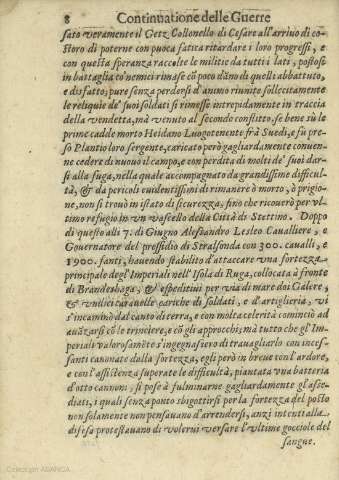 8 Continuatione delle Guerre
sato veramente il Getz Collonello di Cesare all'arriuo di co-
storo di poterne con puoca fatica ritardare i loro progressi, e
con questa speranza raccolte le militie da tutti i lati, postosi
in battaglia co'nemici rimase cõ poco dãno di quelli abbattuto,
e disfatto; pure senza perdersi d'animo riunite sollecitamente
le reliquie de' suoi soldati si rimesse intrepidamente in traccia
della vendetta, mà venuto al secondo conflitto, se bene sù le
prime cadde morto Heidano Luogotenente frà Suedi, e fù pre-
so Plantio loro sergente, caricato però gagliardamente conuen-
ne cedere di nuouo il campo, e con perdita di molti de' suoi dar-
si alla fuga, nella quale accompagnato da grandissime difficul-
tà, & da pericoli euidentissimi di rimanere ò morto, ò prigio-
ne, non si trouò in istato di sicurezza, fino che ricouerò per vl-
timo refugio in vn vascello della Città di Stettino. Doppo
di questo alli 7. di Giugno Alessandro Lesleo Cavalliere, e
Gouernatore del pressidio di Stralsonda con 300. caualli, e
1900. fanti, hauendo stabilito d'attaccare vna fortezza
principale degl'Imperiali nell'Isola di Ruga, collocata à fronte
di Brandeshaga, & espeditiui per via di mare doi Galere,
& vndici carauelle cariche di soldati, e d'artiglieria, vi
s'incaminò dal canto di terra, e con molta celerità cominciò ad
auãzarsi cõ le trinciere, e cõ gli approcchi; mà tutto che gl'Im-
periali valorosamẽte s'ingegnassero di trauagliarlo con inces-
santi canonate dalla fortezza, egli però in breue con l'ardore,
e con l'assistenza superate le difficultà, piantata vna batteria
d'otto cannoni, si pose à fulminarne gagliardamente gl'asse-
diati, i quali senza ponto sbigottirsi per la fortezza del posto
non solamente non pensauano d'arrendersi, anzi intenti alla
difesa protestauano di volerui versare l'vltime gocciole del
sangue.